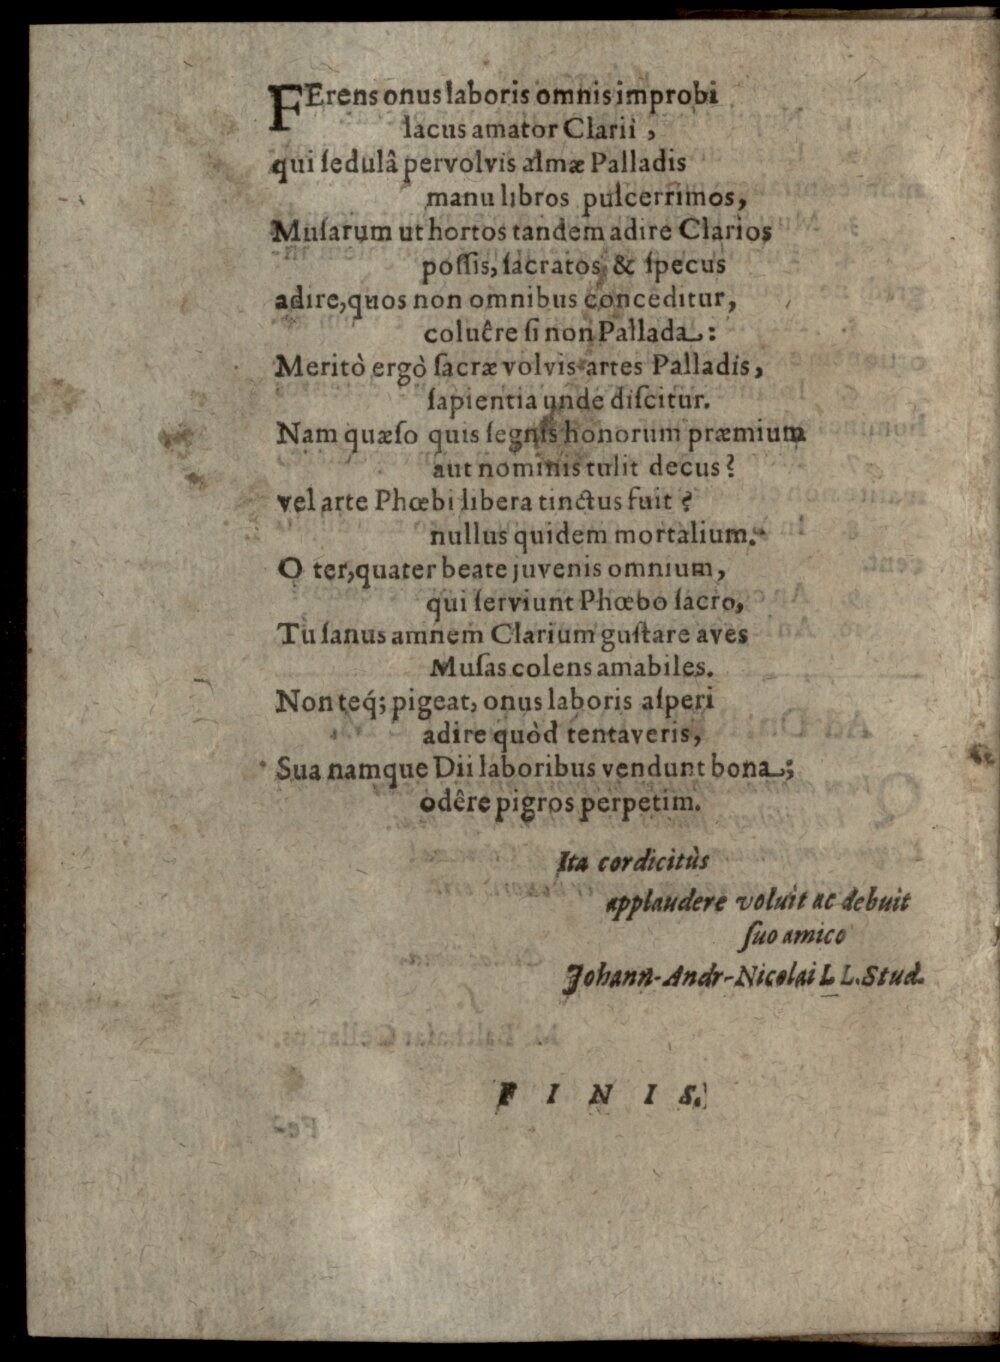 FErens onus laboris omnis improbi
lacus amator Clarii ,
qui ſedulâ pervolvis almæ Palladis
manu libros pulcerrimos,
Muſarum ut hortos tandem adire Clarios
poſſis, ſacratos, & ſpecus
adire, quos non omnibus conceditur,
coluêre ſi non Pallada:
Meritò ergò ſacræ volvis artes Palladis,
ſapientia unde diſcitur.
Nam quæſo quis ſegnis honorum præmium
aut nominis tulit decus?
vel arte Phœbi libera tinctus fuit?
nullus quidem mortalium.
O ter, quater beate juvenis omnium,
qui ſerviunt Phœbo ſacro,
Tu ſanus amnem Clarium guſtare aves
Muſas colens amabiles.
Non teq́; pigeat, onus laboris aſperi
adire quòd tentaveris,
Sua namque Dii laboribus vendunt bona;
odêre pigros perpetim.
Ita cordicitùs
applaudere voluit ac debuit
ſuo amico
Johann-Andr-Nicolai L L. Stud.
F I N I S.